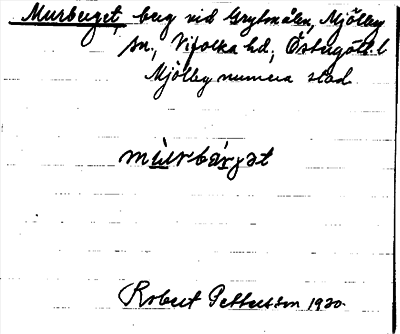 Murberget, berg vid Grytmålen, Mjölby
sn, Vifolka hd, Östergötl. l
Mjölby numera stad
mùrbárjet
Robert Pettersson 1920